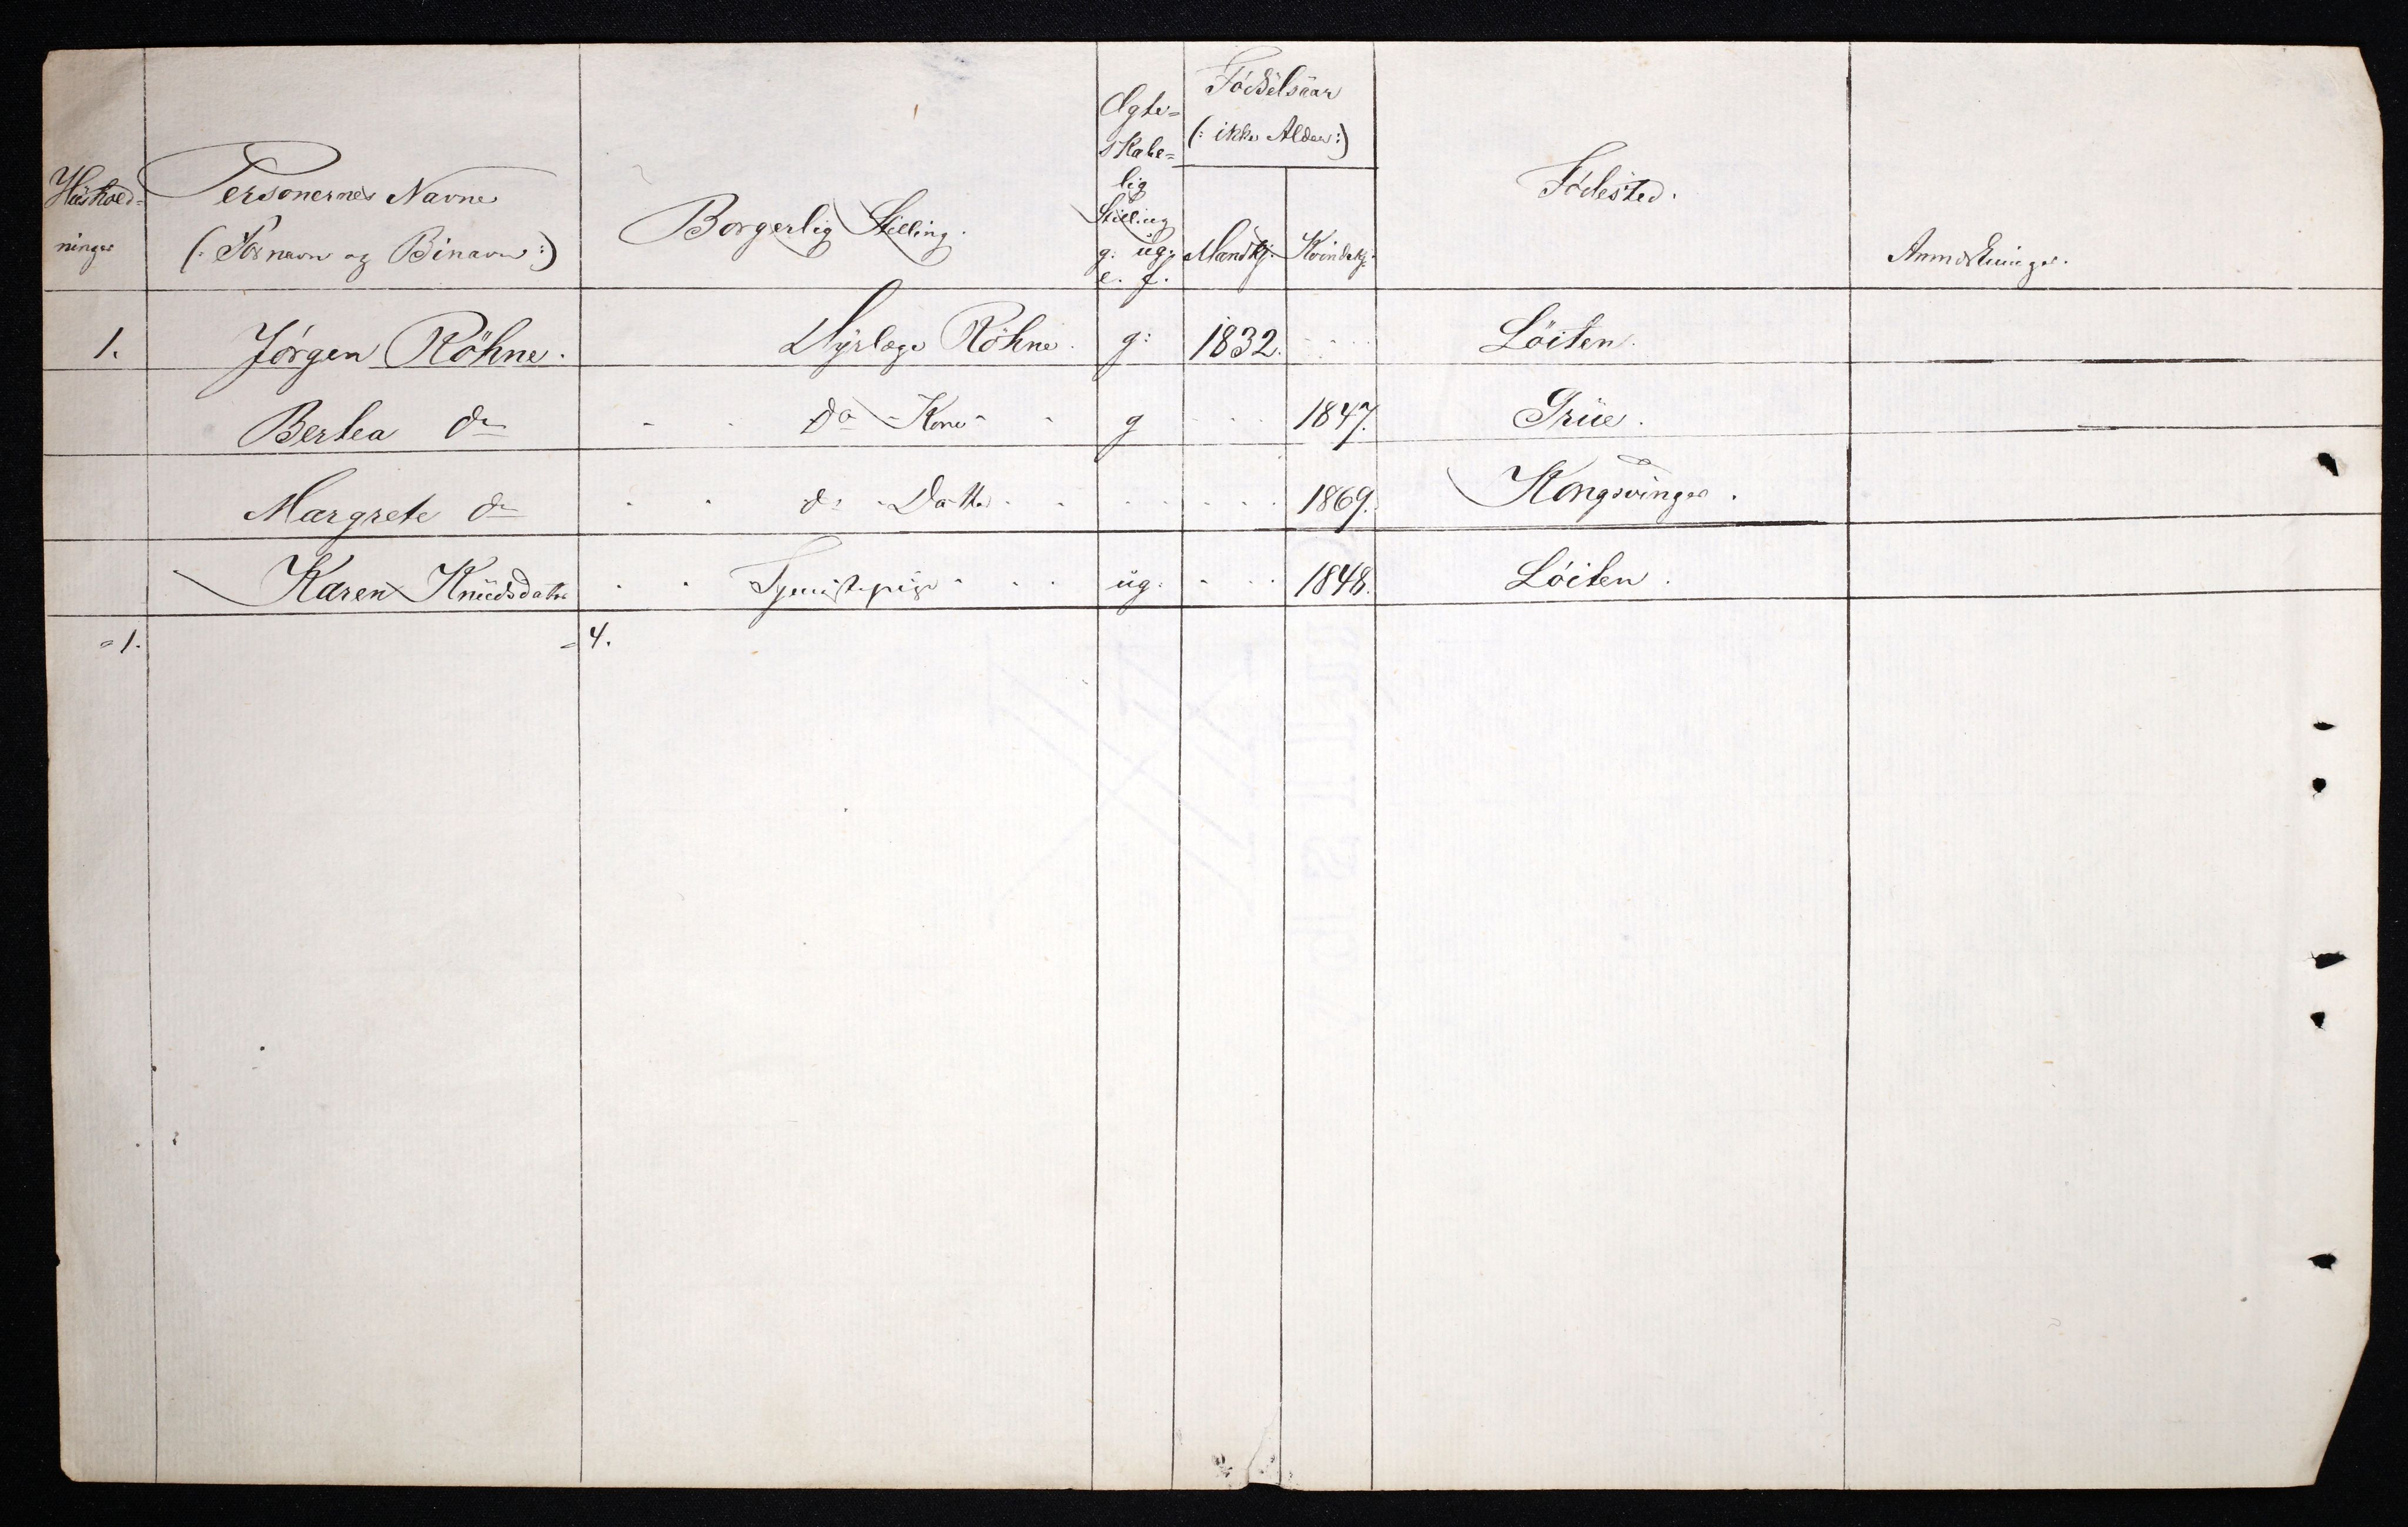 Huushold- Personernes Navne Borgerlig Stilling. Ægte- Fødselsaar Fødested. Anmærkninger.
ninger (: Fornavn og Binavn :) skabe- (: ikke Alder :)
lig
Stilling
g: ug: Mandkj. Kvindekj.
e. f.
1. Jörgen Röhne. Dyrlæge Röhne. g: 1832. Löiten.
Bertea do do Kone g 1847. Grue.
Margrete do do Datter 1869. Kongsvinger.
Karen Knudsdatter Tjenestepige ug. 1848. Löiten.
=1. =4.